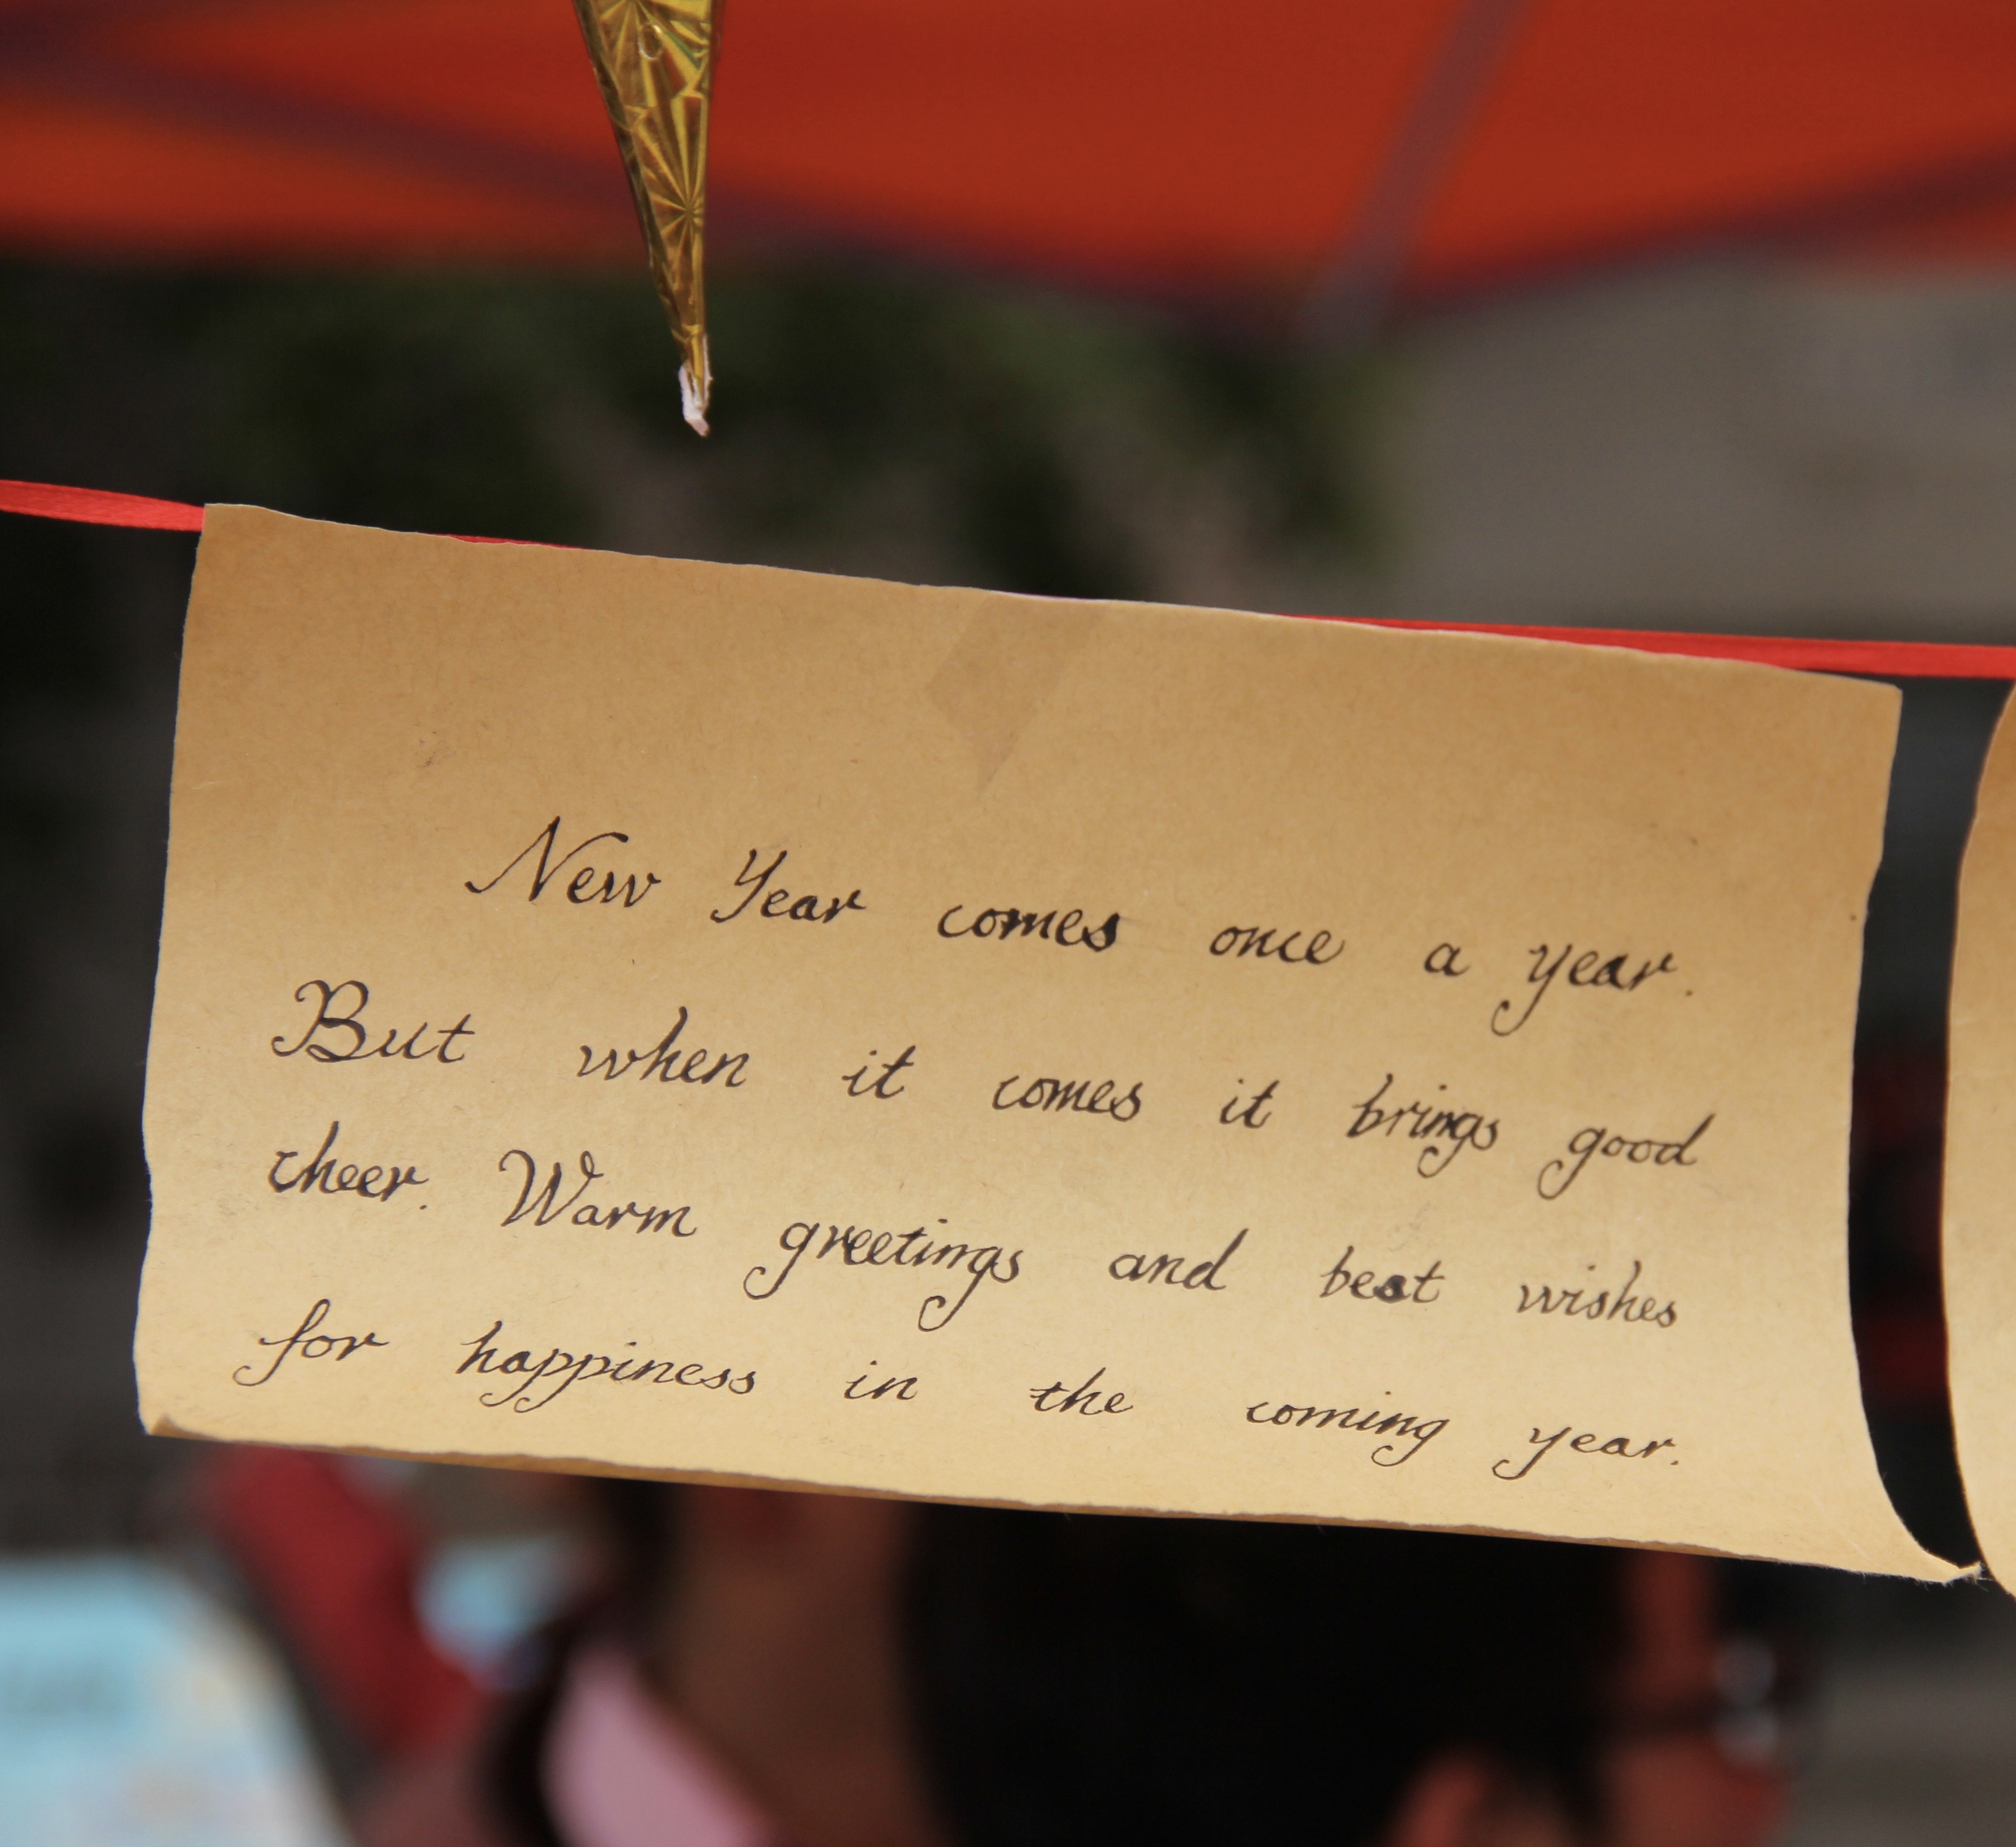 New Year comes once a year.
But when it comes it brings good
cheer. Warm greetings and best wishes
for happiness in the coming year.